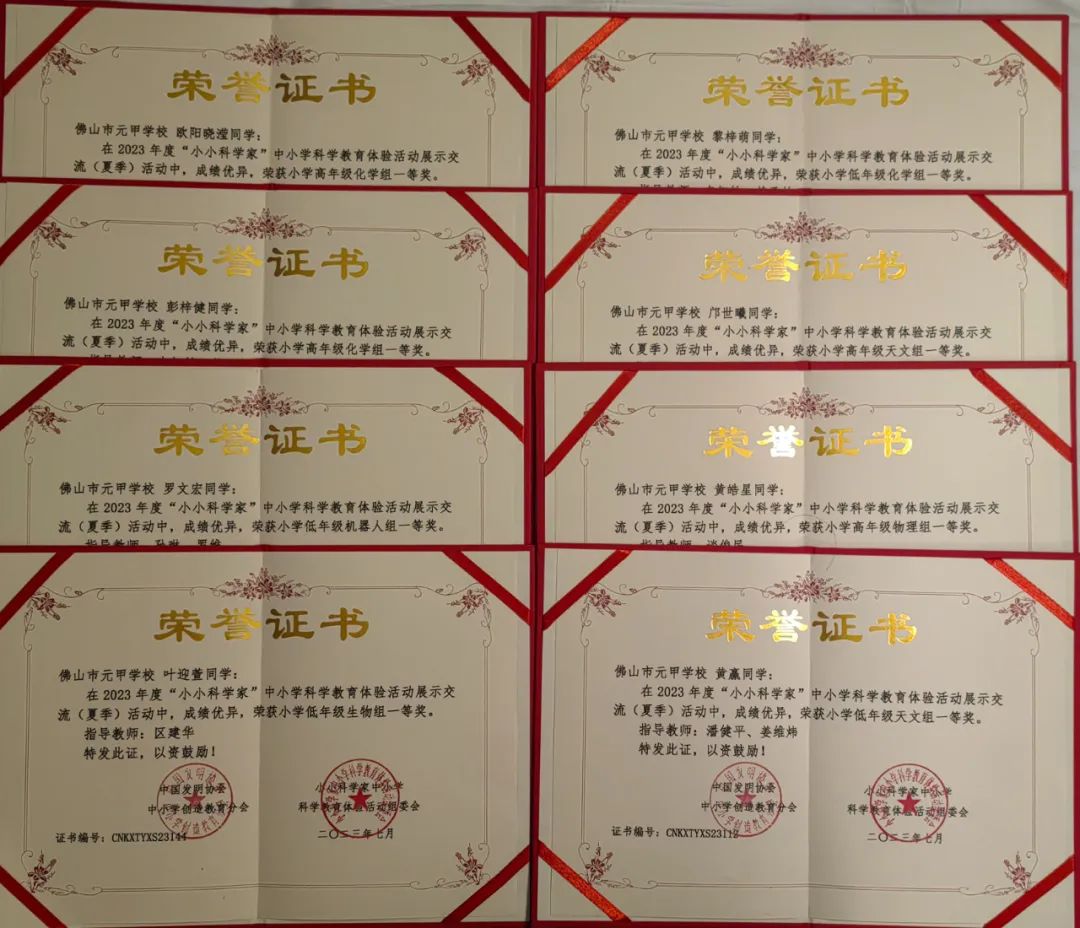 荣誉证书
佛山市元甲学校 欧阳晓滢同学：
在2023年度“小小科学家”中小学科学教育体验活动展示交
流（夏季）活动中，成绩优异，荣获小学高年级化学组一等奖。
荣誉证书
佛山市元甲学校 黎梓萌同学：
在2023年度“小小科学家”中小学科学教育体验活动展示交
流（夏季）活动中，成绩优异，荣获小学低年级化学组一等奖。
荣誉证书
佛山市元甲学校 彭梓健同学：
在2023年度“小小科学家”中小学科学教育体验活动展示交
流（夏季）活动中，成绩优异，荣获小学高年级化学组一等奖。
荣誉证书
佛山市元甲学校 邝世曦同学：
在2023年度“小小科学家”中小学科学教育体验活动展示交
流（夏季）活动中，成绩优异，荣获小学高年级天文组一等奖。
荣誉证书
佛山市元甲学校 罗文宏同学：
在2023年度“小小科学家”中小学科学教育体验活动展示交
流（夏季）活动中，成绩优异，荣获小学低年级机器人组一等奖。
荣誉证书
佛山市元甲学校 黄皓星同学：
在2023年度“小小科学家”中小学科学教育体验活动展示交
流（夏季）活动中，成绩优异，荣获小学高年级物理组一等奖。
荣誉证书
佛山市元甲学校 叶迎萱同学：
在2023年度“小小科学家”中小学科学教育体验活动展示交
流（夏季）活动中，成绩优异，荣获小学低年级生物组一等奖。
指导教师：区建华
特发此证，以资鼓励！
中国发明协会
中小学创造教育分会
小小科学家中小学
科学教育体验活动组委会
证书编号：CNKXTYXS23144
二〇二三年七月
荣誉证书
佛山市元甲学校 黄赢同学：
在2023年度“小小科学家”中小学科学教育体验活动展示交
流（夏季）活动中，成绩优异，荣获小学低年级天文组一等奖。
指导教师：潘健平、姜维炜
特发此证，以资鼓励！
中国发明协会
中小学创造教育分会
小小科学家中小学
科学教育体验活动组委会
证书编号：CNKXTYXS23112
二〇二三年七月